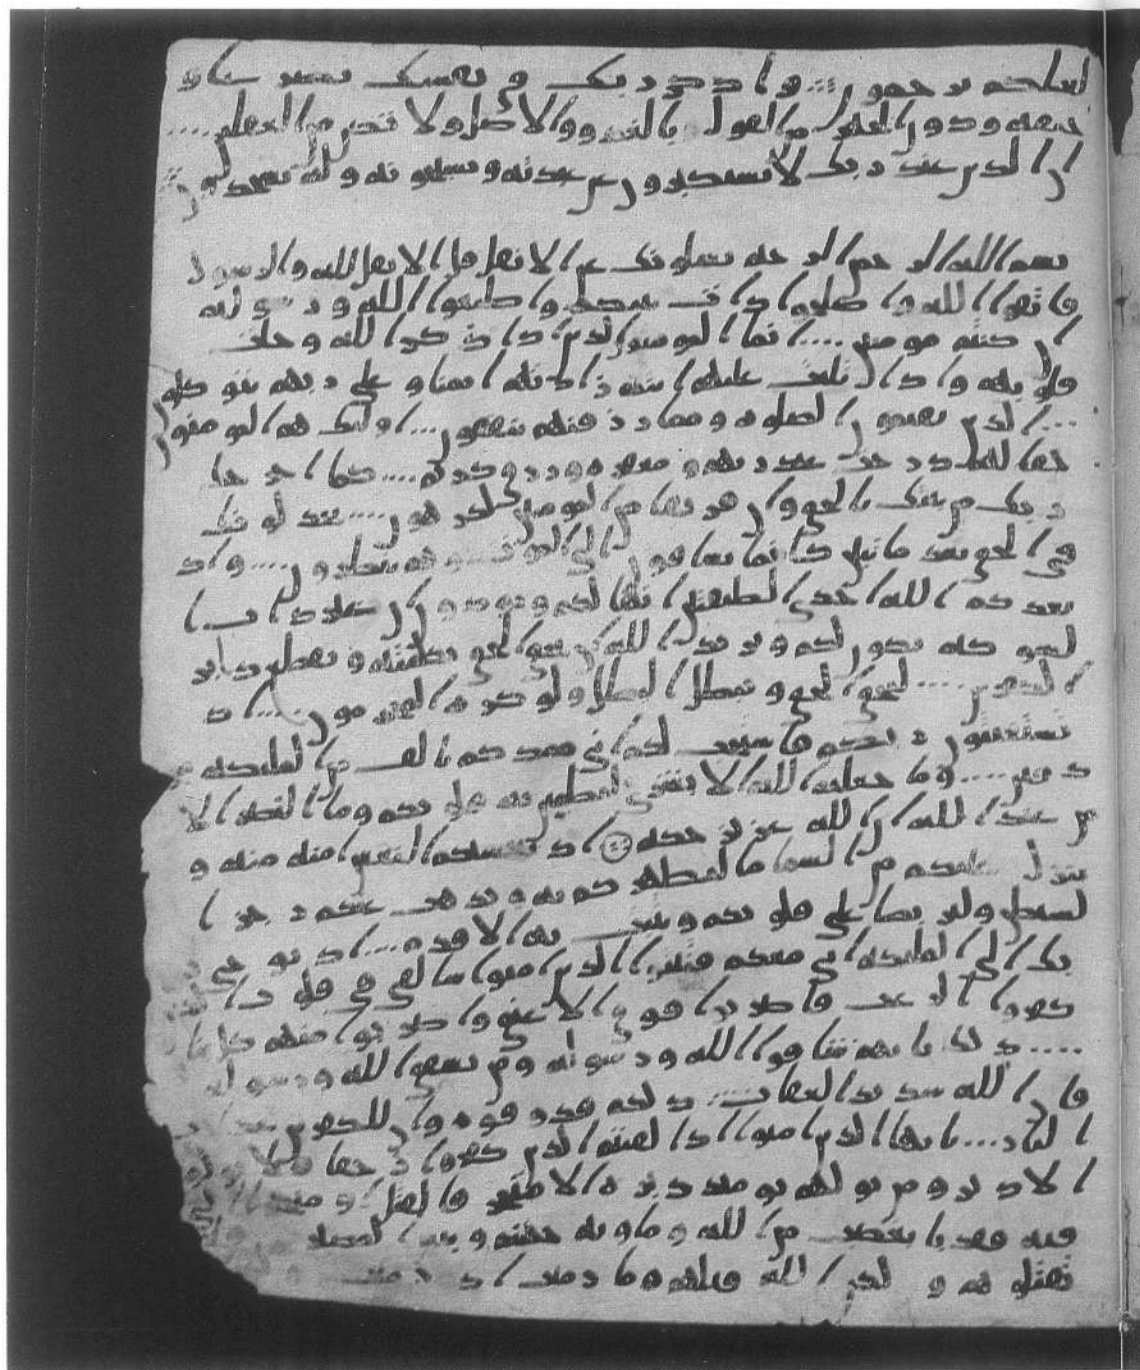 لعلكم ترحمون واذكر ربك في نفسك تضرعا و
خيفة ودون الجهر من القول بالغدو والاصل ولا تكن من الغفلين
ان الذين عند ربك لا يستكبرون عن عبدته ويسبحونه وله يسجدون
بسم الله الرحمن الرحيم يسلونك عن الانفل قل الانفل لله والرسول
فاتقوا الله واصلحوا ذات بينكم واطيعوا الله ورسوله
ان كنتم مومنين انما المومنون الذين اذا ذكر الله وجلت
قلوبهم واذا تليت عليهم ايته زادتهم ايمنا وعلى ربهم يتوكلون
الذين يقيمون الصلوة ومما رزقنهم ينفقون اوليك هم المومنون
حقا لهم درجت عند ربهم ومغفرة ورزق كريم كما اخرجك
ربك من بيتك بالحق وان فريقا من المومنين لكرهون يجدلونك
في الحق بعد ما تبين كانما يساقون الى الموت وهم ينظرون واذ
يعدكم الله احدى الطيفتين انها لكم وتودون ان غير ذات ا
لشوكة تكون لكم ويريد الله ان يحق الحق بكلمته ويقطع دابر
الكفرين ليحق الحق ويبطل البطل ولو كره المجرمون اذ
تستغيثون ربكم فاستجب لكم اني ممدكم بالف من المليكة مر
دفين وما جعله الله الا بشرى لتطمين به قلوبكم وما النصر الا
من عند الله ان الله عزيز حكيم اذ يغشيكم النعس امنة منه و
ينزل عليكم من السما ما ليطهركم به ويذهب عنكم رجز ا
لشيطن وليربط على قلوبكم ويثبت به الاقدم اذ يوحي ر
بك الى المليكة اني معكم فثبتوا الذين امنوا سالقي في قلوب الذين
كفروا الرعب فاضربوا فوق الاعنق واضربوا منهم كل بنان
ذلك بانهم شاقوا الله ورسوله ومن يشقق الله ورسوله
فان الله شديد العقاب ذلكم فذوقوه وان للكفرين عذاب
النار يايها الذين امنوا اذا لقيتم الذين كفروا زحفا فلا
الادبر ومن يولهم يوميذ دبره الا متحرفا لقتل او متحيزا
فية فقد با بغضب من الله وماويه جهنم وبيس المصير
تقتلوهم ولكن الله قتلهم وما رميت اذ رميت